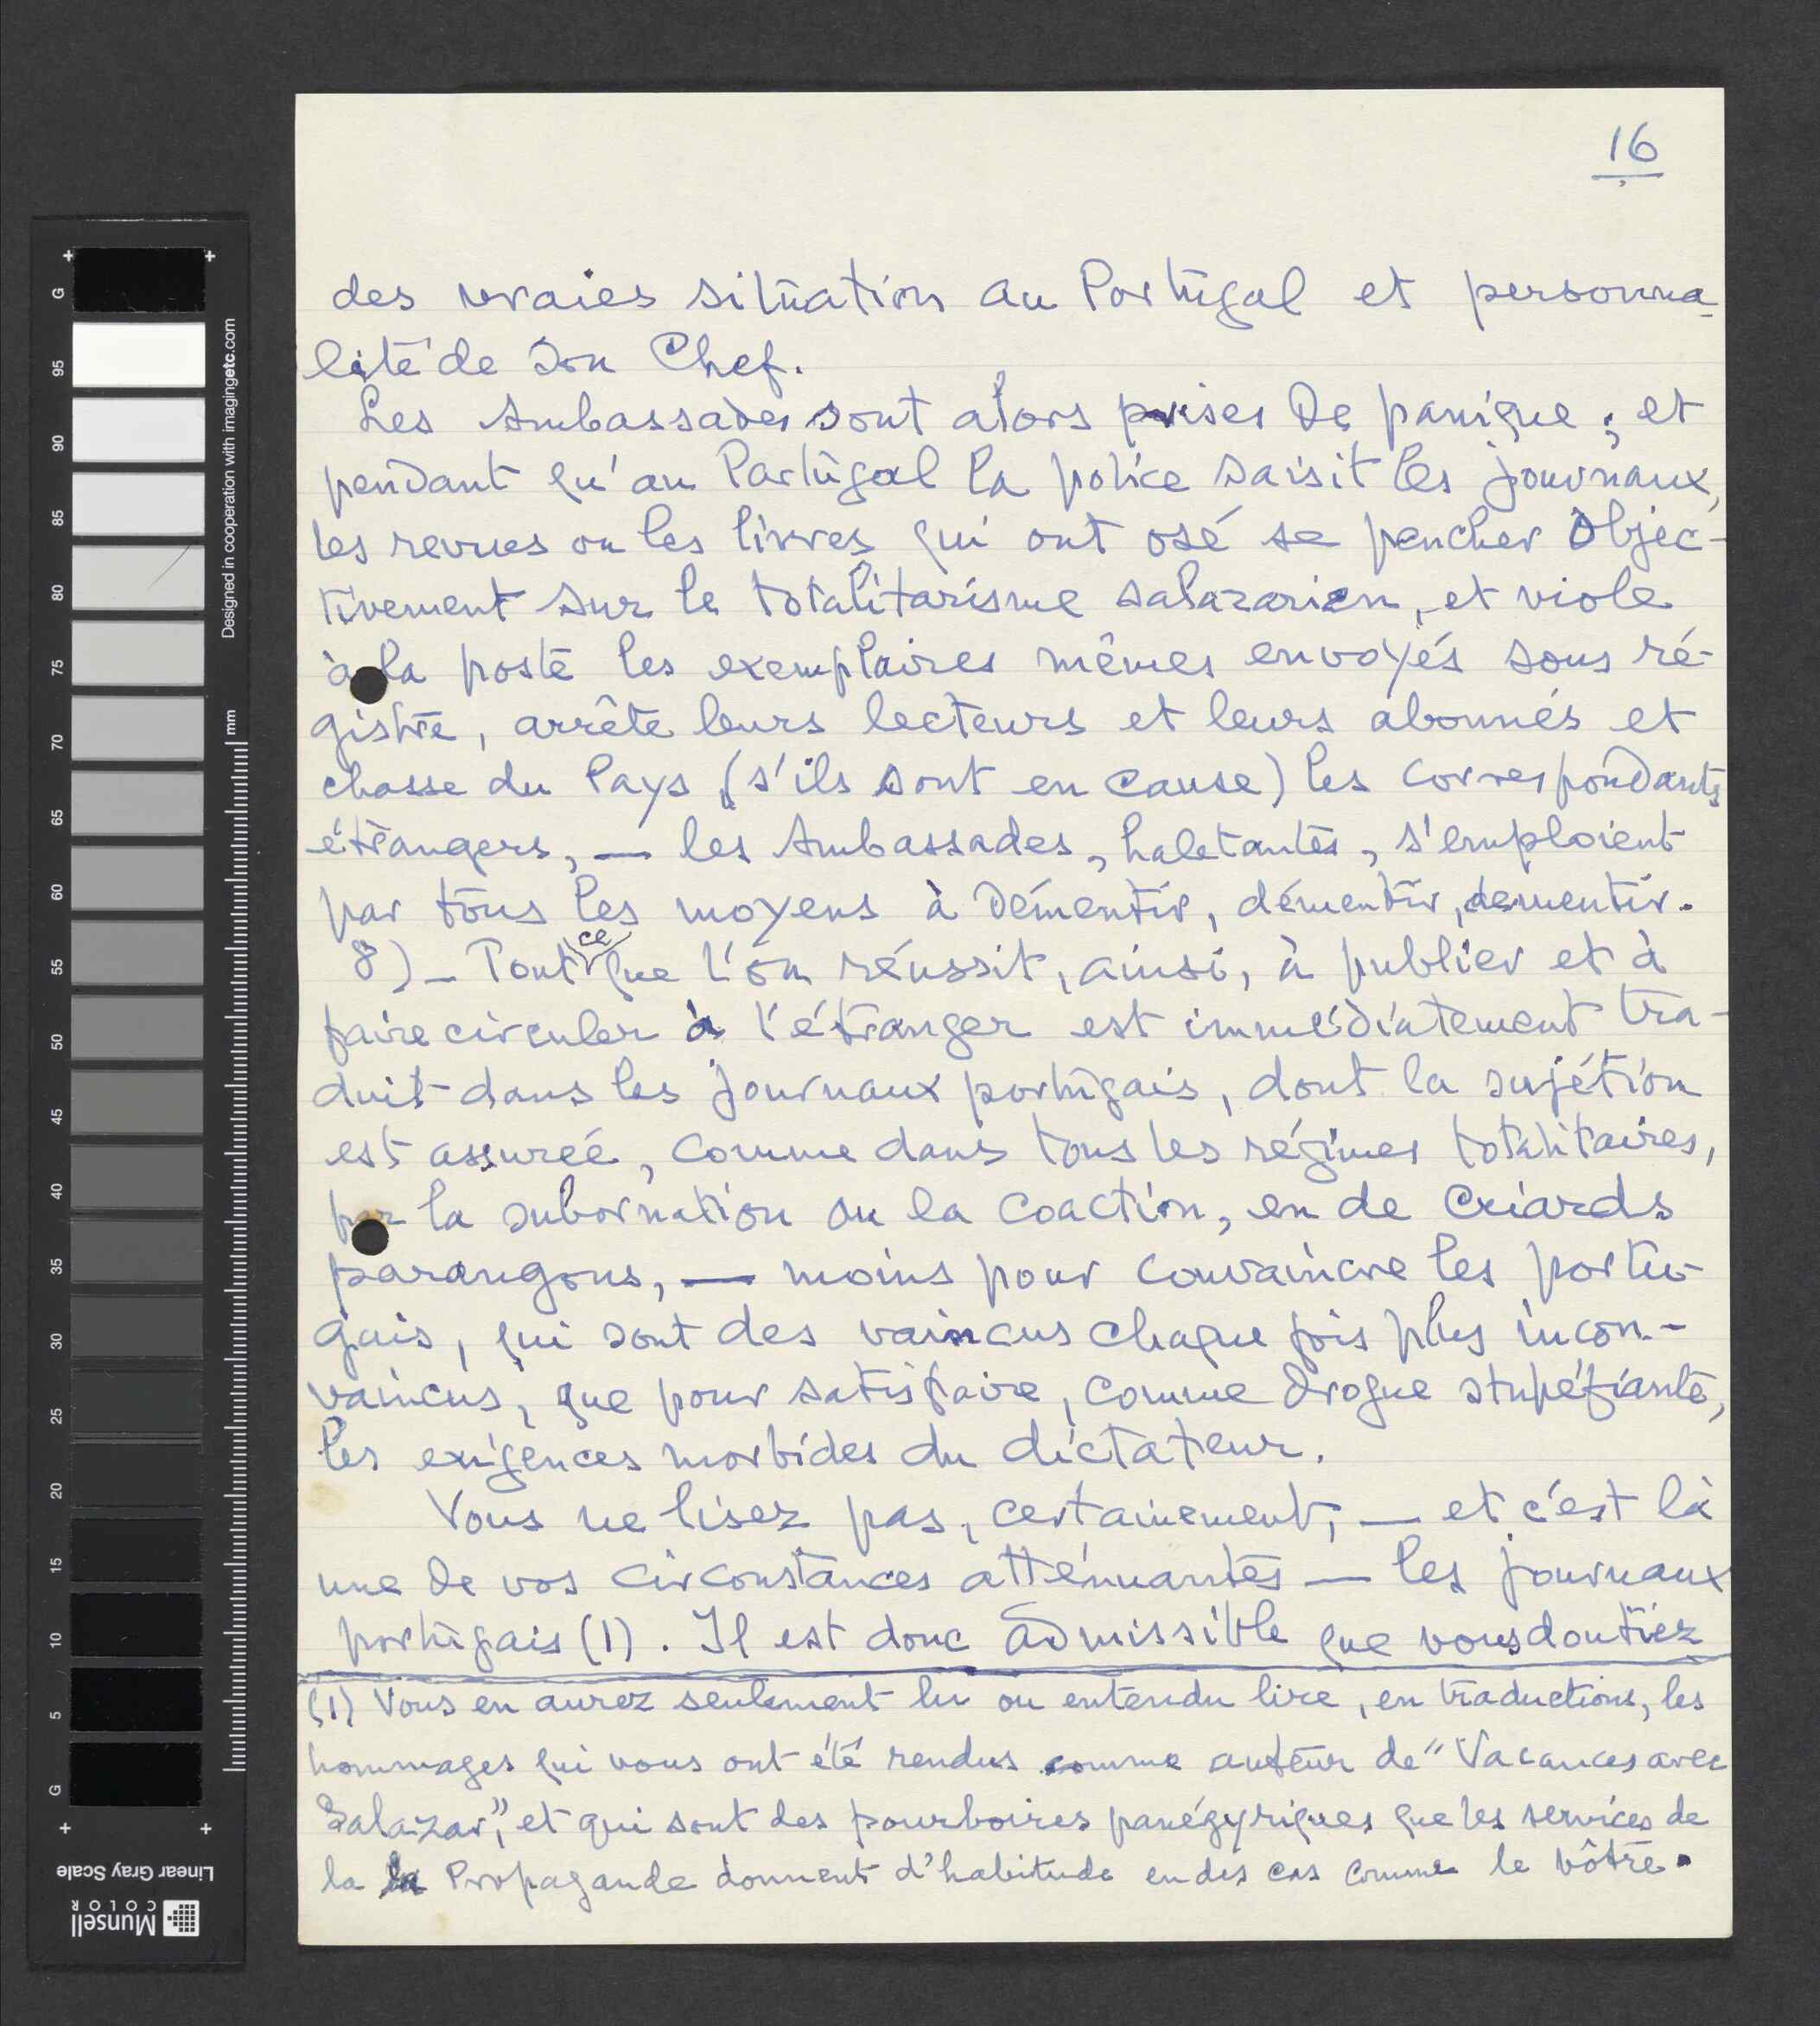 16
des vraies situation au Portugal et personna-
lité de son Chef.
Les Ambassades sont alors prises de panique ; et
pendant qu'au Portugal la police saisit les journaux,
les revues ou les livres qui ont osé se pencher objec-
tivement sur le totalitarisme salazarien, et viole
à la poste les exemplaires mêmes envoyés sous ré-
gistre, arrête leurs lecteurs et leurs abonnés et
chasse du Pays (s'ils sont en cause) les correspondants
étrangers, — les Ambassades, haletantes, s'emploient
par tous les moyens à démentir, démentir, dementir.
8) - Tout ce que l'on réussit, ainsi, à publier et à
faire circuler à l'étranger est immédiatement tra-
duit dans les journaux portugais, dont la sujétion
est assurée, comme dans tous les régimes totalitaires,
par la subornation ou la coaction, en de criards
parangons, — moins pour convaincre les portu-
gais, qui sont des vaincus chaque fois plus incon-
vaincus, que pour satisfaire, comme drogue stupéfiante,
les exigences morbides du dictateur.
Vous ne lisez pas, certainement, — et c'est là
une de vos circonstances atténuantes — les journaux
portugais (1). Il est donc admissible que vous doutiez
(1) Vous en aurez seulement lu ou entendu lire, en traductions, les
hommages qui vous ont été rendus comme auteur de "Vacances avec
Salazar", et qui sont des pourboires panégyriques que les services de
la la Propagande donnent d'habitude en des cas comme le vôtre.
G
95
90
85
80
75
70
65
60
55
50
45
40
35
30
25
20
15
10
5
G
mm
Designed in cooperation with imagingetc.com
Linear Gray Scale
Munsell
COLOR